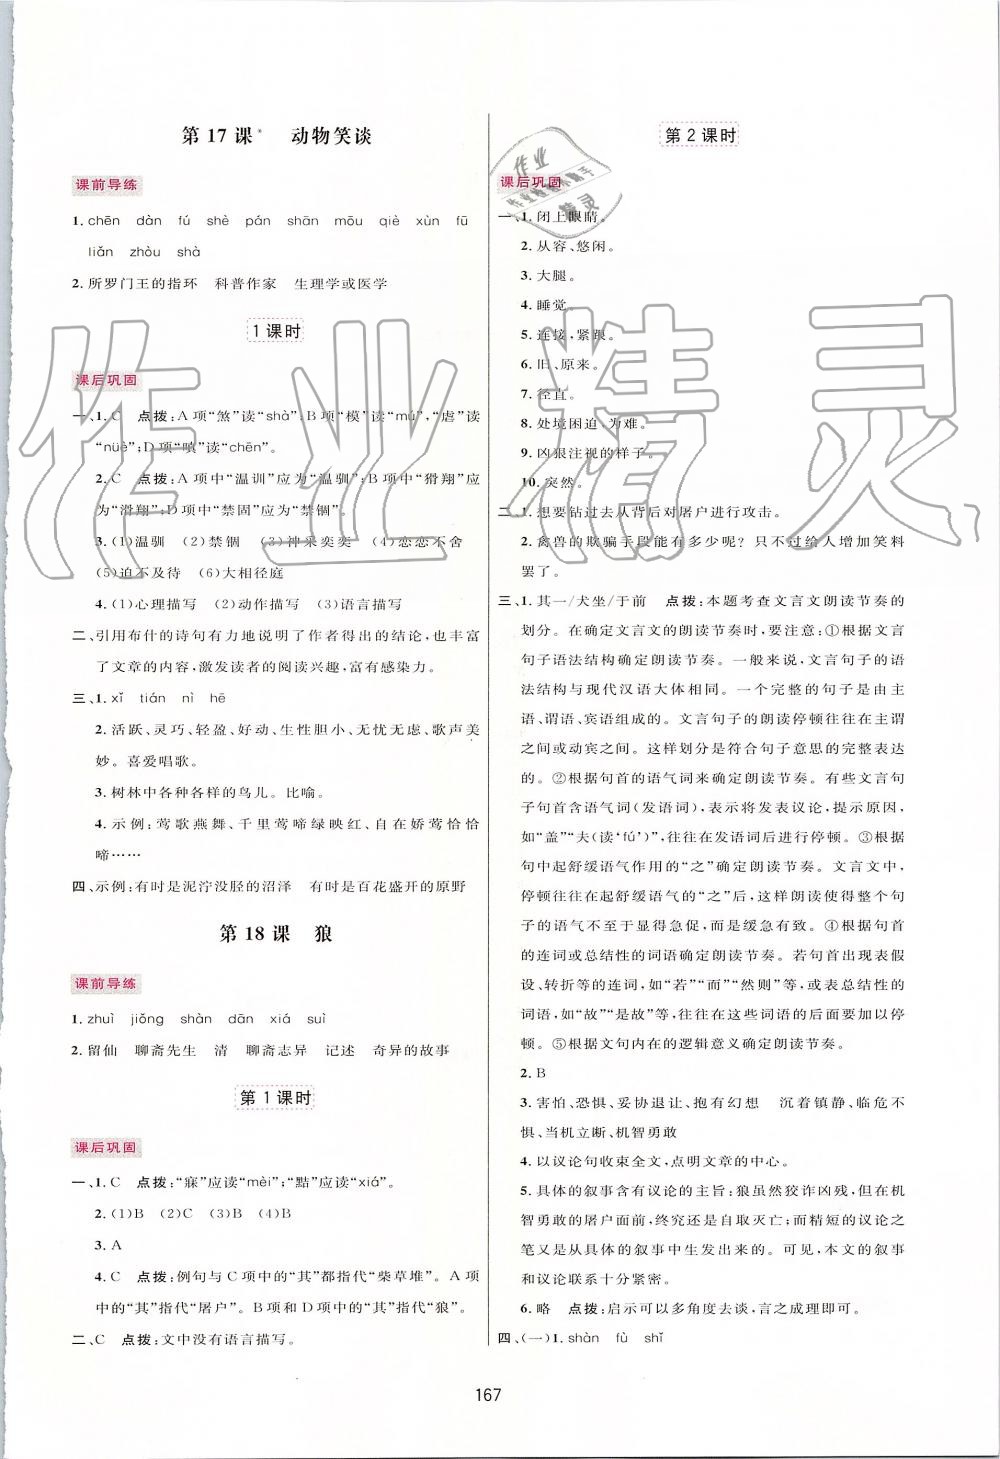 第 17 课*　动物笑谈
课前导练
1. chēn　dàn　fú　shè　pán　shān　mōu　qiè　xùn　fū
liǎn　zhòu　shà
2. 所罗门王的指环　科普作家　生理学或医学
1 课时
课后巩固
一、1. C　点拨：A 项“煞”读“shà”，B 项“模”读“mú”，“虐”读
“nüè”；D 项“嗔”读“chēn”。
2. C　点拨：A 项中“温训”应为“温驯”；B 项中“猾翔”应
为“滑翔”；D 项中“禁固”应为“禁锢”。
3. (1)温驯　(2)禁锢　(3)神采奕奕　(4)恋恋不舍
(5)迫不及待　(6)大相径庭
4. (1)心理描写　(2)动作描写　(3)语言描写
二、引用布什的诗句有力地说明了作者得出的结论，也丰富
了文章的内容，激发读者的阅读兴趣，富有感染力。
三、1. xǐ　tián　nì　hē
2. 活跃、灵巧、轻盈、好动、生性胆小、无忧无虑、歌声美
妙。喜爱唱歌。
3. 树林中各种各样的鸟儿。比喻。
4. 示例：莺歌燕舞、千里莺啼绿映红、自在娇莺恰恰
啼……
四、示例：有时是泥泞没胫的沼泽　有时是百花盛开的原野
第 18 课　狼
课前导练
1. zhuì　jiǒng　shàn　dān　xiá　suì
2. 留仙　聊斋先生　清　聊斋志异　记述　奇异的故事
第 1 课时
课后巩固
一、1. C　点拨：“寐”应读“mèi”；“黠”应读“xiá”。
2. (1)B　(2)C　(3)B　(4)B
3. A
4. C　点拨：例句与 C 项中的“其”都指代“柴草堆”。A 项
中的“其”指代“屠户”。B 项和 D 项中的“其”指代“狼”。
二、C　点拨：文中没有语言描写。
第 2 课时
课后巩固
一、1. 闭上眼睛。
2. 从容、悠闲。
3. 大腿。
4. 睡觉。
5. 连接，紧跟。
6. 旧、原来。
7. 径直。
8. 处境困迫，为难。
9. 凶狠注视的样子。
10. 突然。
二、1. 想要钻过去从背后对屠户进行攻击。
2. 禽兽的欺骗手段能有多少呢？只不过给人增加笑料
罢了。
三、1. 其一/犬坐/于前　点拨：本题考查文言文朗读节奏的
划分。在确定文言文的朗读节奏时，要注意：①根据文言
句子语法结构确定朗读节奏。一般来说，文言句子的语
法结构与现代汉语大体相同。一个完整的句子是由主
语、谓语、宾语组成的。文言句子的朗读停顿往往在主谓
之间或动宾之间。这样划分是符合句子意思的完整表达
的。②根据句首的语气词来确定朗读节奏。有些文言句
子句首含语气词（发语词），表示将发表议论，提示原因，
如“盖”“夫(读‘fú’)”，往往在发语词后进行停顿。③根据
句中起舒缓语气作用的“之”确定朗读节奏。文言文中，
停顿往往在起舒缓语气的“之”后，这样朗读能使整个句
子的语气不至于显得急促，而是缓急有致。④根据句首
的连词或总结性的词语确定朗读节奏。若句首有表假
设、转折等的连词，如“若”“而”“然则”等，或表总结性的
词语，如“故”“是故”等，往往在这些词语的后面要加以停
顿。⑤根据文句内在的逻辑意义确定朗读节奏。
2. B
3. 害怕、恐惧、妥协退让、抱有幻想　沉着镇静、临危不
惧、当机立断、机智勇敢
4. 以议论句收束全文，点明文章的中心。
5. 具体的叙事含有议论的主旨：狼虽然狡诈凶残，但在机
智勇敢的屠户面前，终究还是自取灭亡；而精短的议论之
笔又是从具体的叙事中生发出来的。可见，本文的叙事
和议论联系十分紧密。
6. 略　点拨：启示可以多角度去谈，言之成理即可。
四、(一)1. shàn　fù　shǐ
167
作业精灵
作业
作业检查小助手
精灵